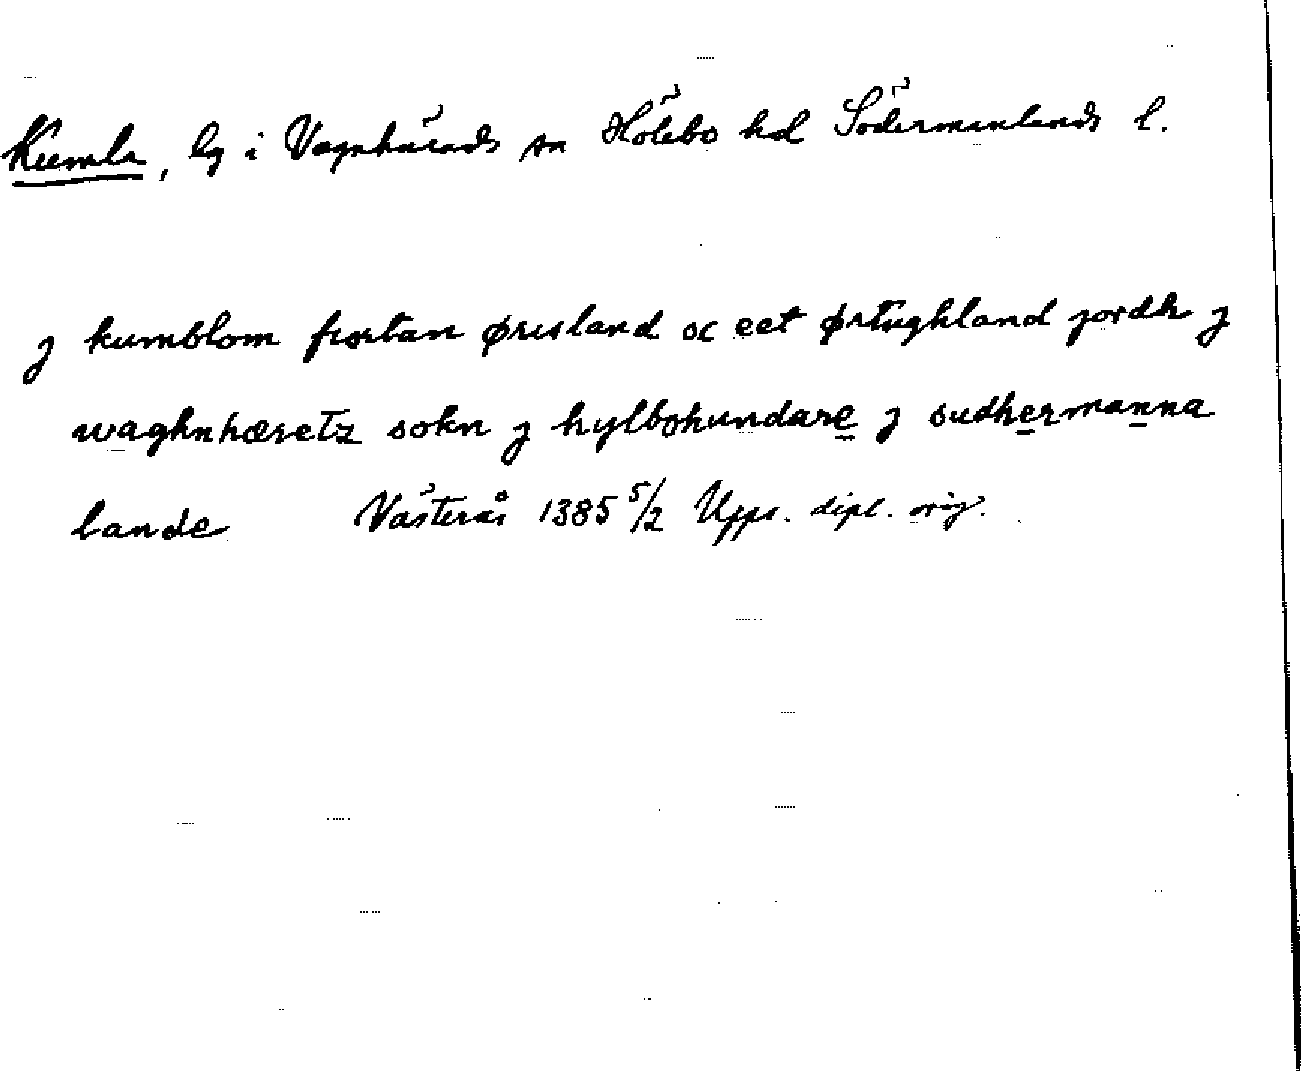 Kumla, by i Vagnhärads sn Hölebo hd Södermanlands l.
j kumblom fiortan øresland oc eet ørtughland jordh j
waghnhæretz sokn j hylbohundare j sudhermanna
lande Västerås 1385 5/2 Upps. dipl. orig.